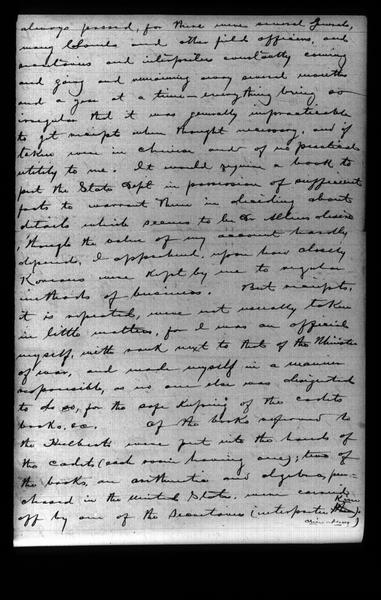 always passed, for there were several Guards,
many Colonels and other field officers, and
secretaries and interpreters constantly coming
and going and remaining away several months
and a year at a time—everything being so
irregular that it was generally impracticable
to get receipts when thought necessary, and if
taken were in Chinese and of no practical
utility to me. It would require a book to
put the State Dept in possession of sufficient
facts to warrant them in deciding about
details which seems to be Dr Allen's desire
, though the value of my account hardly
depends, I apprehend, upon how closely
Koreans were kept by me to regular
methods of business. But receipts,
it is repeated, were not usually taken
in little matters, for I was an official
myself, with rank next to that of the Minister
of war, and made myself in a manner
responsible, as no one else was designated
to do so, for the safe keeping of the cadets
books, &c. Of the books referred to
the Hulberts were put into the hands of
the cadets (each room having one); two of
the books, an arithmetic and algebra, pur-
chased in the United States, were carried
off by one of the Secretaries (interpreter